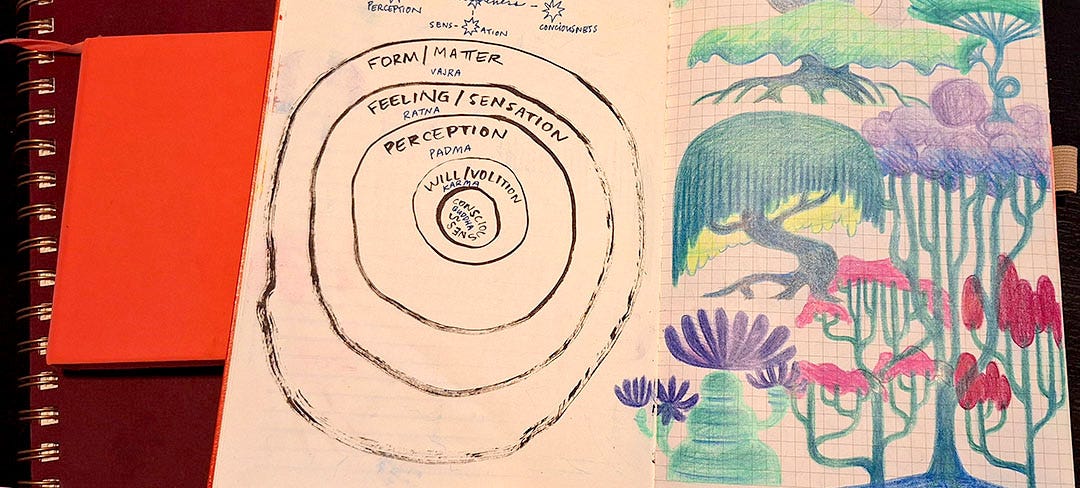 PERCEPTION
SENS-ATION
CONCIOUSNESS
FORM/MATTER
VAJRA
FEELING/SENSATION
RATNA
PERCEPTION
PADMA
WILL/VOLITION
KARMA
CONSCIOUSNESS
BUDDHA